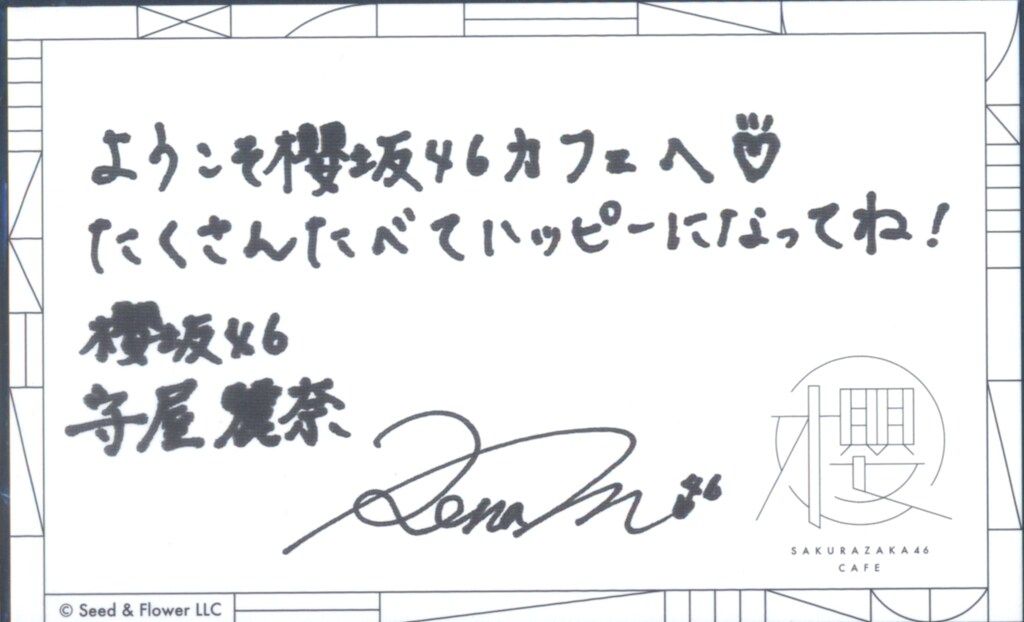 ようこそ櫻坂46カフェへ
たくさんたべてハッピーになってね!
櫻坂46
守屋麗奈
Rena M 46
櫻
SAKURAZAKA46
CAFE
© Seed & Flower LLC